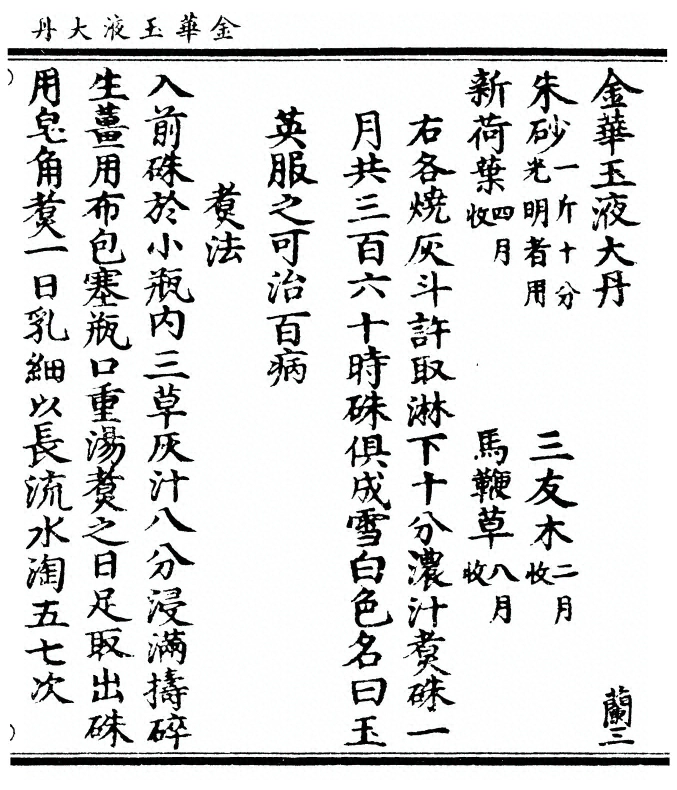 金華玉液大丹
金華玉液大丹
蘭三
朱砂一斤十分光明者用 三友木二月收
新荷葉四月收 馬鞭草八月收
右各燒灰斗許取淋下十分濃汁煑硃一
月共三百六十時硃俱成雪白色名曰玉
英服之可治百病
煑法
入前硃於小瓶內三草灰汁八分浸滿擣碎
生薑用布包塞瓶口重湯煑之日足取出硃
用皂角煑一日乳細以長流水淘五七次